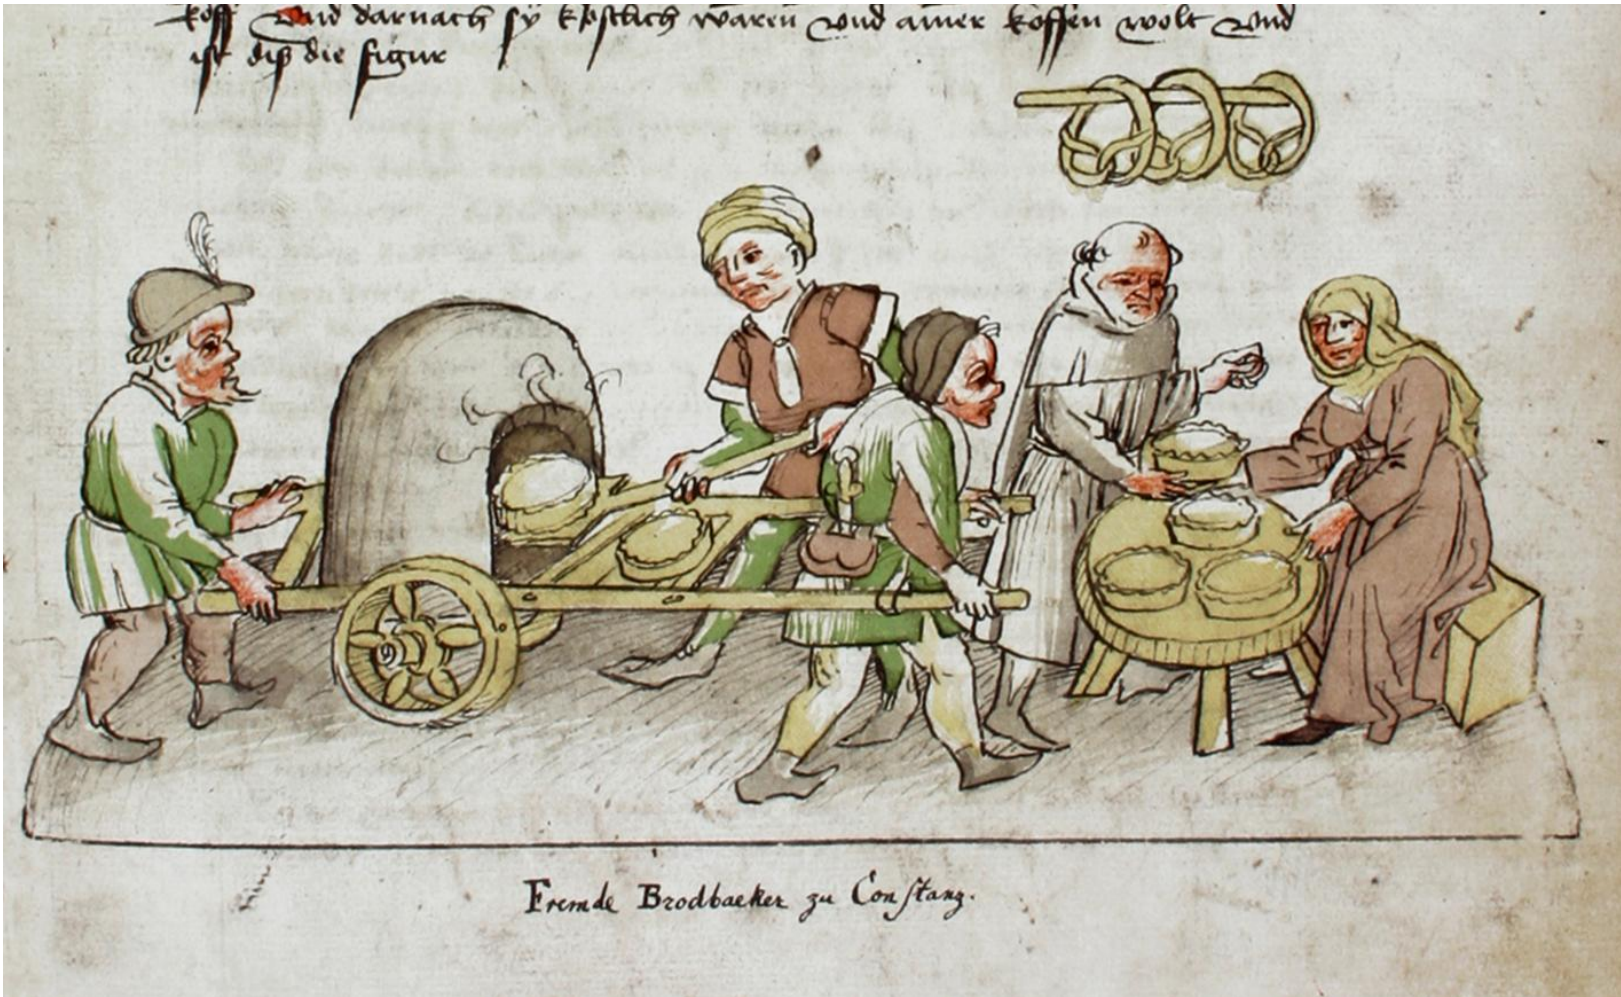 koff Vnd darnach sÿ kostlich waren vnd ainer koffen wolt Vnd
ist diß die figur
Fremde Brodbaeker zu Constanz.